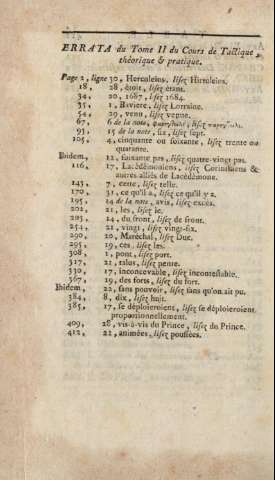 ERRATA du Tome II du Cours de Tactique,
théorique & pratique.
Page 2, ligne 30, Herculeïus, lisez Hirtuleïus.
18, 28, étoit, lisez étant.
34, 20, 1687, lisez 1684.
35, 1, Baviere, lisez Lorraine.
54, 29, venu, lisez venue.
67, 6 de la note, lisez
93, 15 de la note, six, lisez sept.
105, 4, cinquante ou soixante, lisez trente ou
quarante.
Ibidem, 12, soixante pas, lisez quatre-vingt pas.
116, 17, Lacédémoniens, lisez Corinthiens &
autres alliés de Lacédémone.
143, 7, cette, lisez telle.
170, 31, ce qu'il a, lisez ce qu'il y a.
195, 14 de la note, avis, lisez excès.
202, 21, les, lisez le.
203, 14, du front, lisez de front.
254, 21, vingt, lisez vingt-six.
290, 20, Maréchal, lisez Duc.
295, 19, ces, lisez les.
308, 1, pont, lisez port.
317, 21, talus, lisez pente.
330, 17, inconcevable, lisez incontestable.
367, 19, des forts, lisez du fort.
Ibidem, 22, sans pouvoir, lisez sans qu'on ait pu.
384, 8, dix, lisez huit.
385, 17, se déploieroient, lisez se déploieroient
proportionnellement.
409, 28, vis-à-vis du Prince, lisez du Prince.
412, 21, animées, lisez poussées.